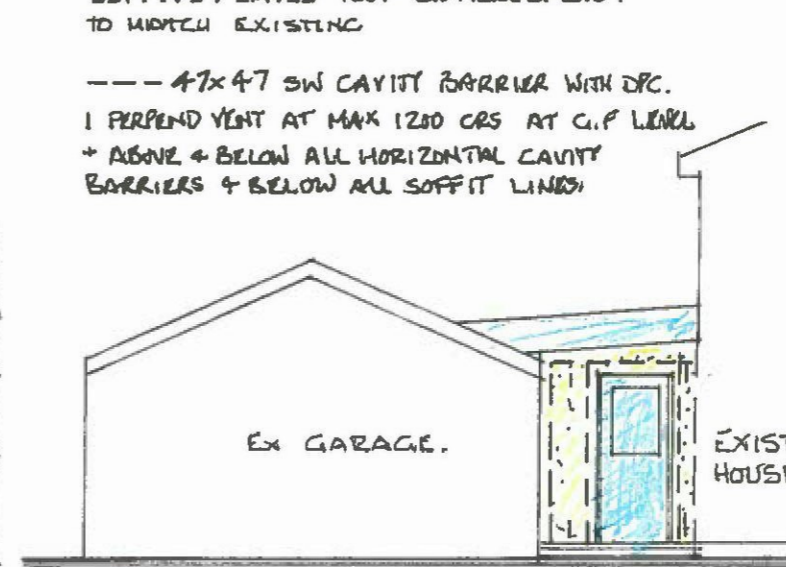 TO MATCH EXISTING
--- 47x47 SW CAVITY BARRIER WITH DPC.
1 PERPEND VENT AT MAX 1200 CRS AT G.F LEVEL
+ ABOVE & BELOW ALL HORIZONTAL CAVITY
BARRIERS & BELOW ALL SOFFIT LINES.
EX GARAGE.
EXIST
HOUSE